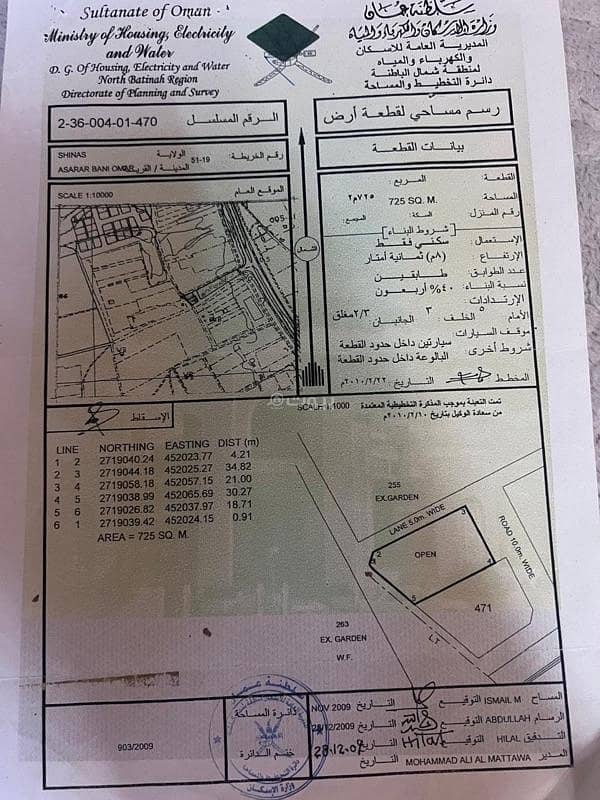 Sultanate of Oman
Ministry of Housing, Electricity
and Water
D. G. Of Housing, Electricity and Water
North Batinah Region
Directorate of Planning and Survey
سلطنة عمان
وزارة الإسكان والكهرباء والمياه
المديرية العامة للاسكان
والكهرباء و المياه
لمنطقة شمال الباطنة
دائرة التخطيط والمساحة
2-36-004-01-470 الرقم المسلسل
رسم مساحي لقطعة أرض
SHINAS الولاية
ASARAR BANI OMAR المدينة / القرية
51-19 رقم الخريطة:
بيانات القطعة
SCALE 1:10000 الموقع العام
القطعة: المربع:
المساحة 725 SQ. M. ٧٢٥م٢
رقم المنزل السكة: المجمع:
شروط البناء
الإستعمال: سكني فقط
الإرتفاع: (٨م) ثمانية أمتار
عدد الطوابق: طابقين
نسبة البناء: ٤٠% أربعون
الإرتدادات:
الأمام ٥ الخلف: ٣ الجانبان ٢/٣مغلق
موقف السيارات: سيارتين داخل حدود القطعة
شروط أخرى: البالوعة داخل حدود القطعة
المخطط التاريخ: ٢٠١٠/٢/٢٢م
الشمال
005
SCALE 1:1000
تمت التعبئة بموجب المذكرة التخطيطية المعتمدة
من سعادة الوكيل بتاريخ ٢٠١٠/٢/١٠م
الإسقاط
LINE NORTHING EASTING DIST (m)
1 2 2719040.24 452023.77 4.21
2 3 2719044.18 452025.27 34.82
3 4 2719058.18 452057.15 21.00
4 5 2719038.99 452065.69 30.27
5 6 2719026.82 452037.97 18.71
6 1 2719039.42 452024.15 0.91
AREA = 725 SQ. M.
255
EX.GARDEN
LANE 5.0m. WIDE
ROAD 10.0m. WIDE
OPEN
2
3
4
5
471
L.T
263
EX. GARDEN
W.F.
903/2009
دائرة المساحة
ختم الدائرة
المساح ISMAIL M التوقيع التاريخ NOV 2009
الرسام ABDULLAH التوقيع التاريخ /12/2009
التدقيق HILAL التوقيع Hilal التاريخ 28.12.09
المدير MOHAMMAD ALI AL MATTAWA التاريخ